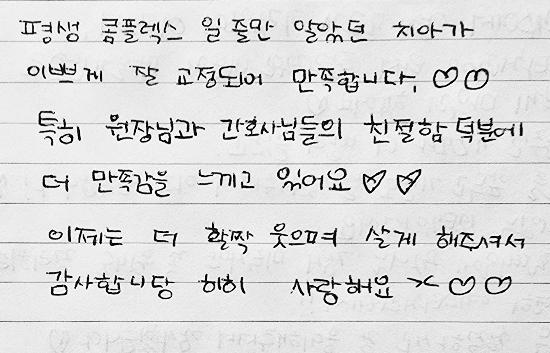 평생 콤플렉스 일 줄만 알았던 치아가
이쁘게 잘 교정되어 만족합니다. ♡♡
특히 원장님과 간호사님들의 친절함 덕분에
더 만족감을 느끼고 있어요 ♡♡
이제는 더 활짝 웃으며 살게 해주셔서
감사합니당 히히 사랑해요 ><♡♡